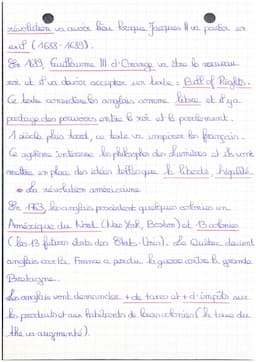 révolution va avoir lieu lorsque Jacques II va partir en
exil (1688-1689).
En 1689, Guillaume III d'Orange va être le nouveau
roi et il va devoir accepter un texte : Bill of Rights.
Ce texte considère les anglais comme libre et il y a
partage des pouvoirs entre le roi et le parlement.
1 siècle plus tard, ce texte va inspirer les français.
Ce système intéresse les philosophes des lumières et ils vont
mettre en place des idées telles que la liberté, l'égalité.
• La révolution américaine.
En 1763, les anglais possèdent quelques colonies en
Amérique du Nord (New York, Boston) et 13 colonies
(les 13 futurs états des États-Unis). Le Québec devient
anglais car la France a perdu la guerre contre la grande
Bretagne.
Les anglais vont demander + de taxes et + d'impôts sur
les produits et aux habitants de leurs colonies (la taxe du
thé va augmenté).